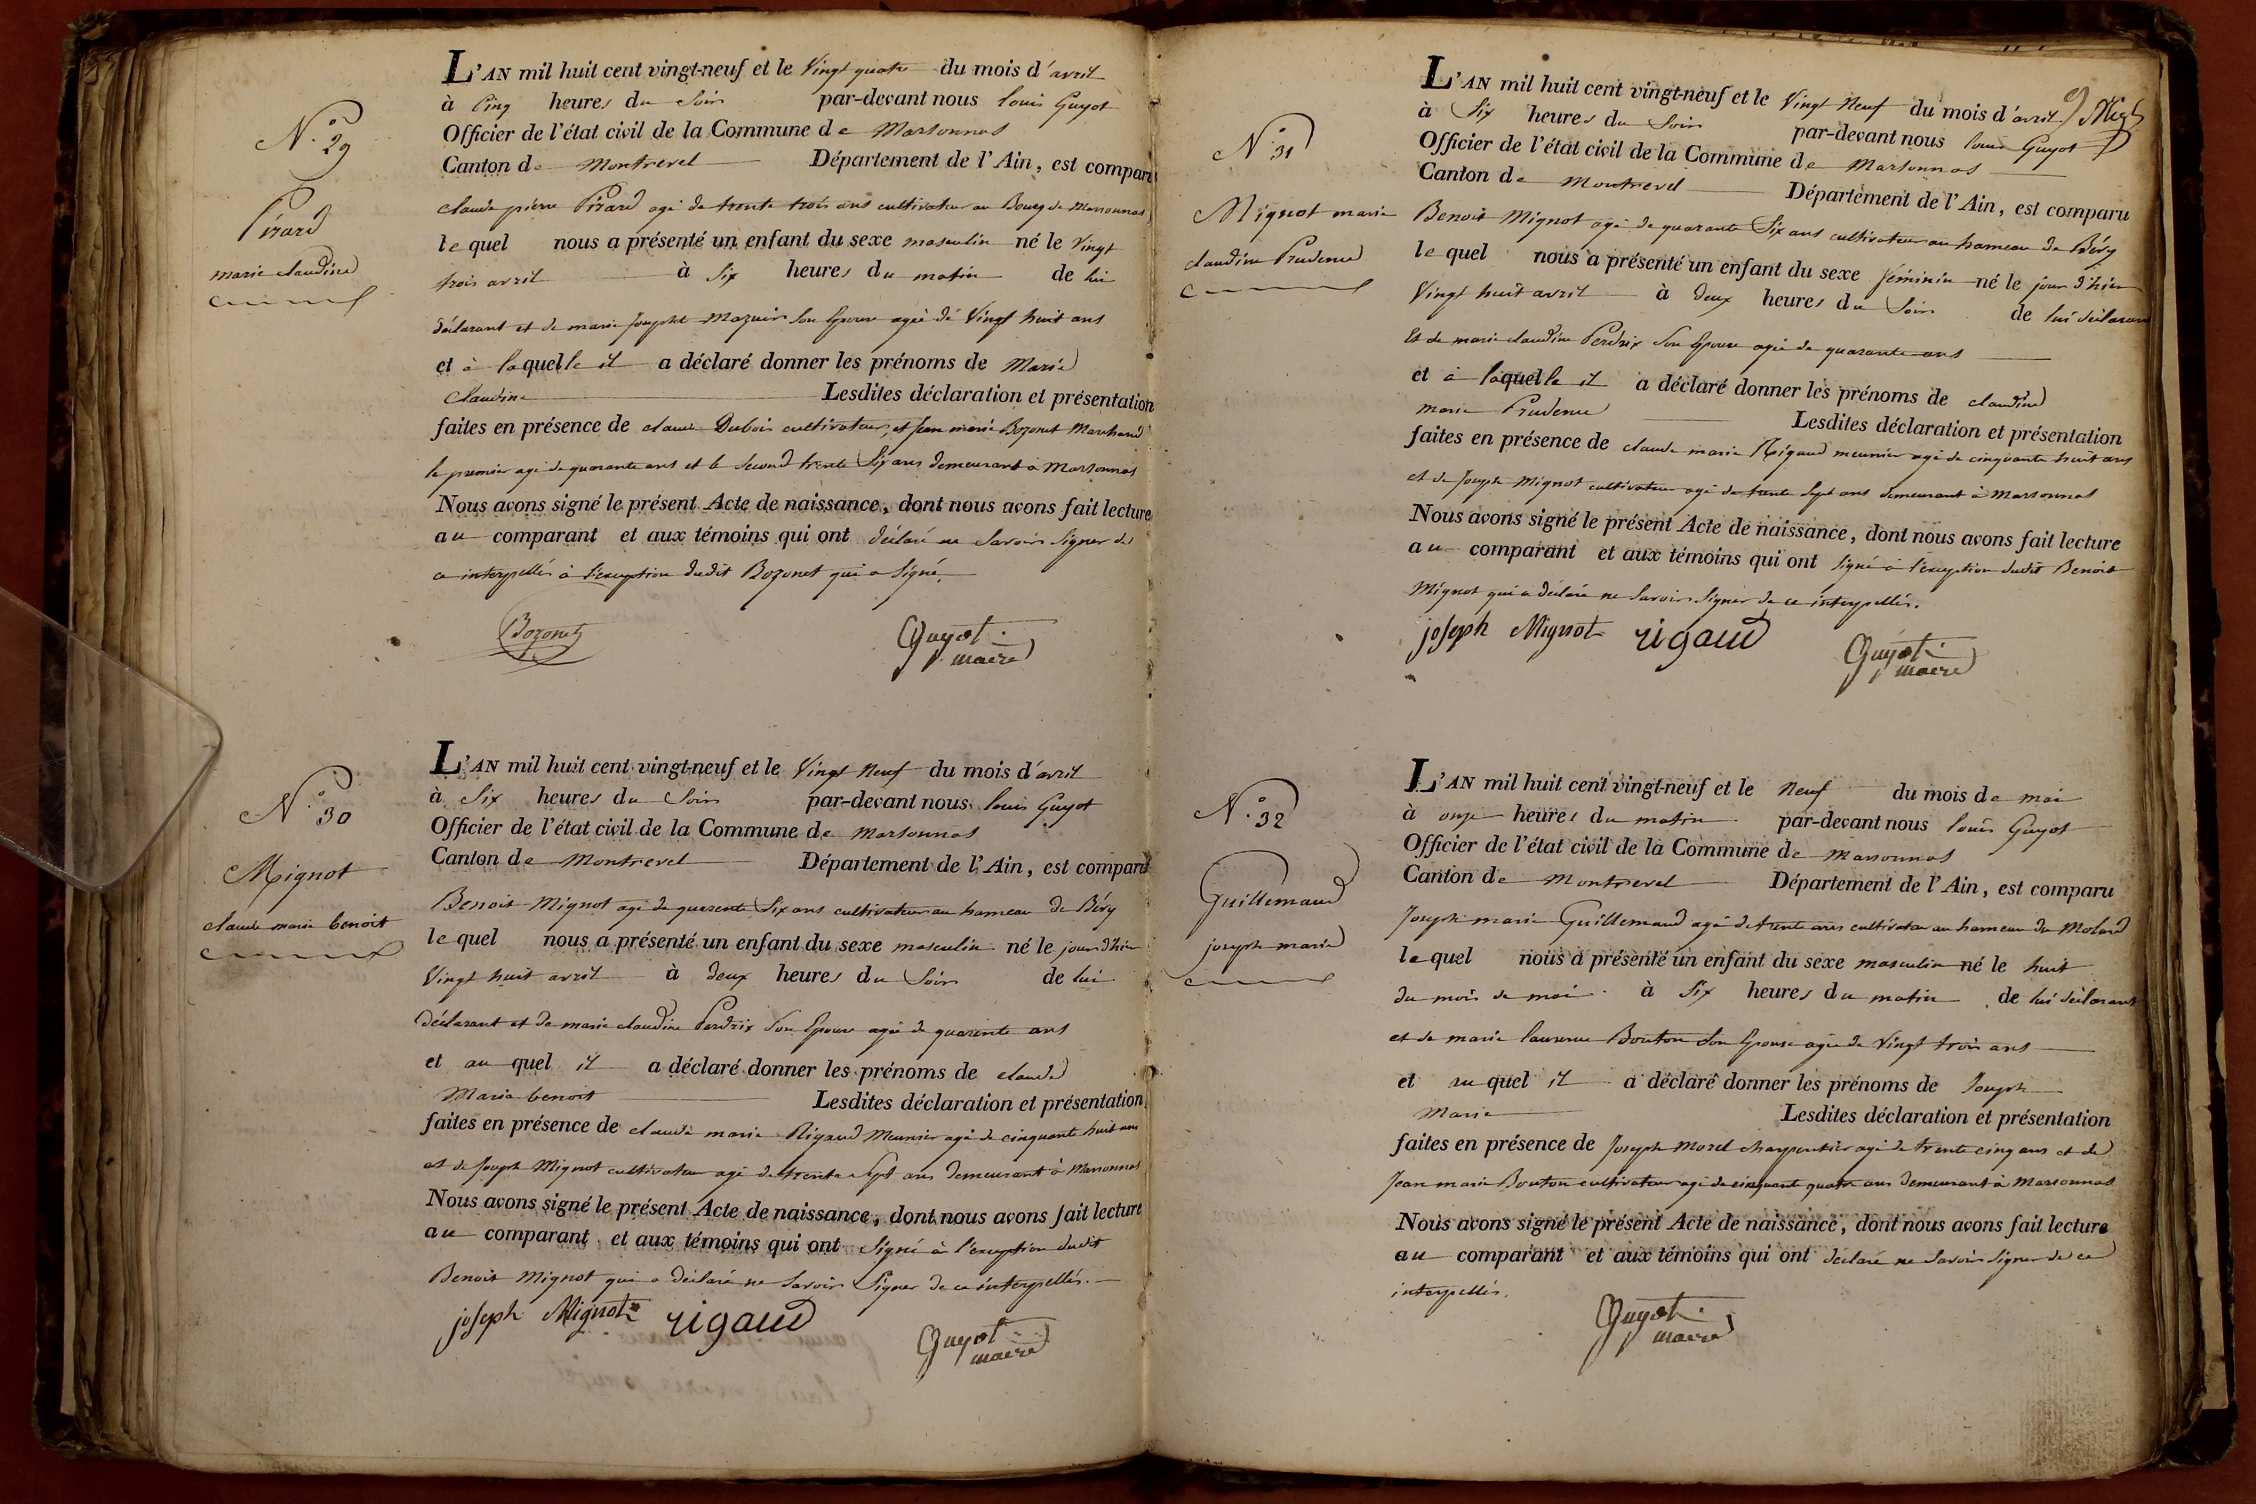 N.o 29
Pirard
marie claudine
L'AN mil huit cent vingt-neuf et le Vingt quatre du mois d'avril
à Cinq heures du Soir par-devant nous louis Guyot
Officier de l'état civil de la Commune de Marsonnas
Canton de Montrevel Département de l'Ain, est comparu
claude pierre Pirard agé de trente trois ans cultivateur au Bourg de Marsonnas
lequel nous a présenté un enfant du sexe masculin né le Vingt
trois avril à Six heures du matin de lui
déclarant et de marie Josephte Mazuir Son Epouse agée de Vingt huit ans
et à laquelle il a déclaré donner les prénoms de Marie
Claudine Lesdites déclaration et présentation
faites en présence de claude Dubois cultivateur, et jean marie Bozonet Marchand
le premier agé de quarante ans et le Second trente Six ans demeurant à Marsonnas
Nous avons signé le présent Acte de naissance, dont nous avons fait lecture
au comparant et aux témoins qui ont déclaré ne Savoir Signer de
ce interpellés à l'exception dudit Bozonet qui a Signé.
Bozonet Guyot
maire
N.o 30
Mignot
claude marie benoit
L'AN mil huit cent vingt-neuf et le Vingt Neuf du mois d'avril
à Six heures du Soir par-devant nous louis Guyot
Officier de l'état civil de la Commune de Marsonnas
Canton de Montrevel Département de l'Ain, est comparu
Benoit Mignot agé de quarante Six ans cultivateur au hameau de Bévy
lequel nous a présenté un enfant du sexe masculin né le jour d'hier
Vingt huit avril à deux heures du Soir de lui
déclarant et de marie claudine Perdrix Son Epouse agée de quarante ans
et au quel il a déclaré donner les prénoms de claude
Marie benoit Lesdites déclaration et présentation
faites en présence de claude marie Rigaud Meunier agé de cinquante huit ans
et de Joseph Mignot cultivateur agé de trente Sept ans demeurant à Marsonnas
Nous avons signé le présent Acte de naissance, dont nous avons fait lecture
au comparant et aux témoins qui ont Signé à l'exception dudit
Benoit Mignot qui a déclaré ne Savoir Signer de ce interpellés.
joseph Mignot rigaud Guyot
maire
N.o 31
Mignot marie
claudine Prudence
L'AN mil huit cent vingt-neuf et le Vingt Neuf du mois d'avril
à Six heures du Soir par-devant nous louis Guyot
Officier de l'état civil de la Commune de Marsonnas
Canton de Montrevel Département de l'Ain, est comparu
Benoit Mignot agé de quarante Six ans cultivateur au hameau de Bévy
lequel nous a présenté un enfant du sexe féminin né le jour d'hier
Vingt huit avril à deux heures du Soir de lui déclarant
Et de marie claudine Perdrix Son Epouse agée de quarante ans
et à laquelle il a déclaré donner les prénoms de claudine
marie Prudence Lesdites déclaration et présentation
faites en présence de claude marie Rigaud meunier agé de cinquante huit ans
et de Joseph Mignot cultivateur agé de trente Sept ans demeurant à Marsonnas
Nous avons signé le présent Acte de naissance, dont nous avons fait lecture
au comparant et aux témoins qui ont Signé à l'exception dudit Benoit
Mignot qui a déclaré ne Savoir Signer de ce interpellés.
joseph Mignot rigaud Guyot
maire
N.o 32
Guillemaud
joseph marie
L'AN mil huit cent vingt-neuf et le Neuf du mois de mai
à onze heures du matin par-devant nous louis Guyot
Officier de l'état civil de la Commune de Marsonnas
Canton de Montrevel Département de l'Ain, est comparu
Joseph marie Guillemaud agé de trente ans cultivateur au hameau du Molard
lequel nous a présenté un enfant du sexe masculin né le huit
du mois de mai à Six heures du matin de lui déclarant
et de marie laurence Bouton Son Epouse agée de Vingt trois ans
et auquel il a déclaré donner les prénoms de Joseph
Marie Lesdites déclaration et présentation
faites en présence de Joseph Morel charpentier agé de trente cinq ans et de
Jean marie Bouton cultivateur agé de cinquant quatre ans demeurant à Marsonnas
Nous avons signé le présent Acte de naissance, dont nous avons fait lecture
au comparant et aux témoins qui ont déclaré ne Savoir Signer de ce
interpellés.
Guyot
maire